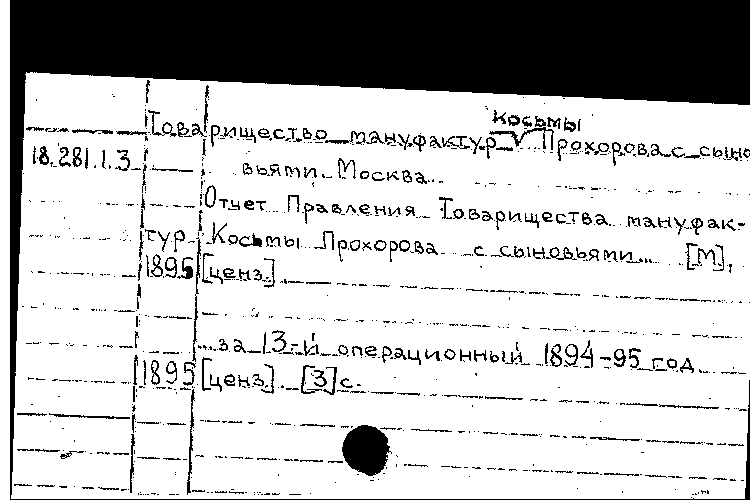 Косьмы
Товарищество мануфактур V Прохорова с сыно
18.281.1.3 вьями. Москва.
Отчет Правления Товарищества мануфак-
тур Косьмы Прохорова с сыновьями... [М],
1895 [ценз.]
...за 13-й операционный 1894-95 год.
1895 [ценз]. [3] с.